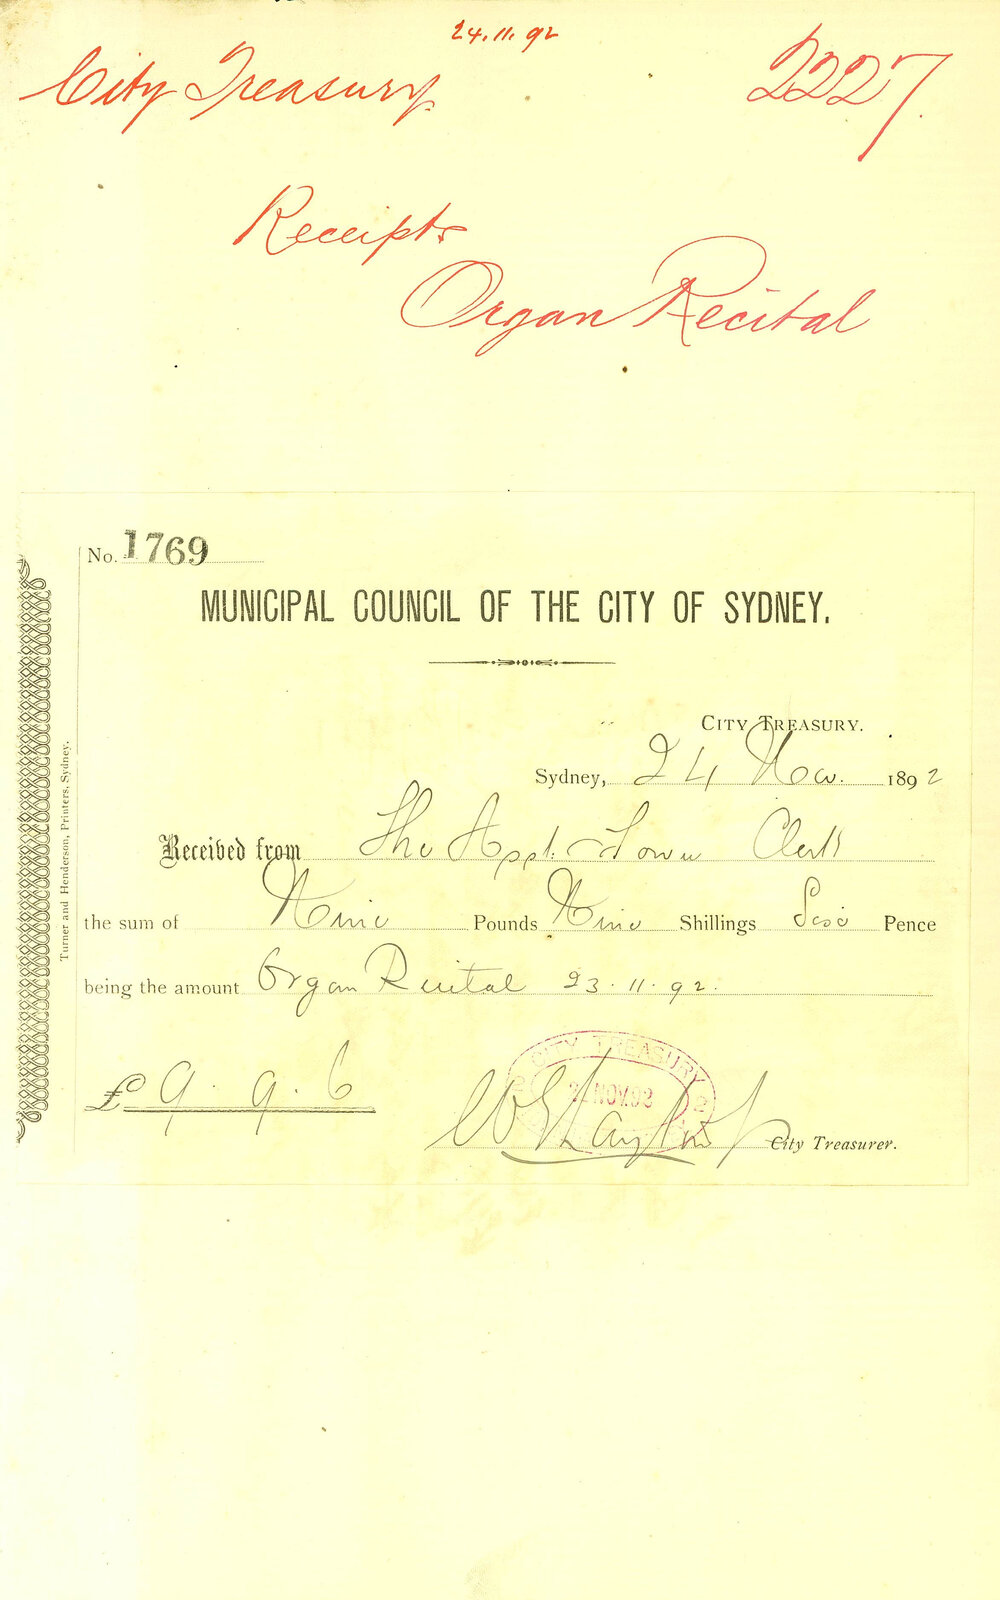 24.11.92
City Treasury
2227
Receipts
Organ Recital
No. 1769
MUNICIPAL COUNCIL OF THE CITY OF SYDNEY.
CITY TREASURY.
Sydney, 24 Nov. 1892
Received from The Asst. Town Clerk
the sum of Nine Pounds Nine Shillings Six Pence
being the amount Organ Recital 23.11.92.
£9.9.6
CITY TREASURY
NOV.92
City Treasurer.
Turner and Henderson, Printers, Sydney.